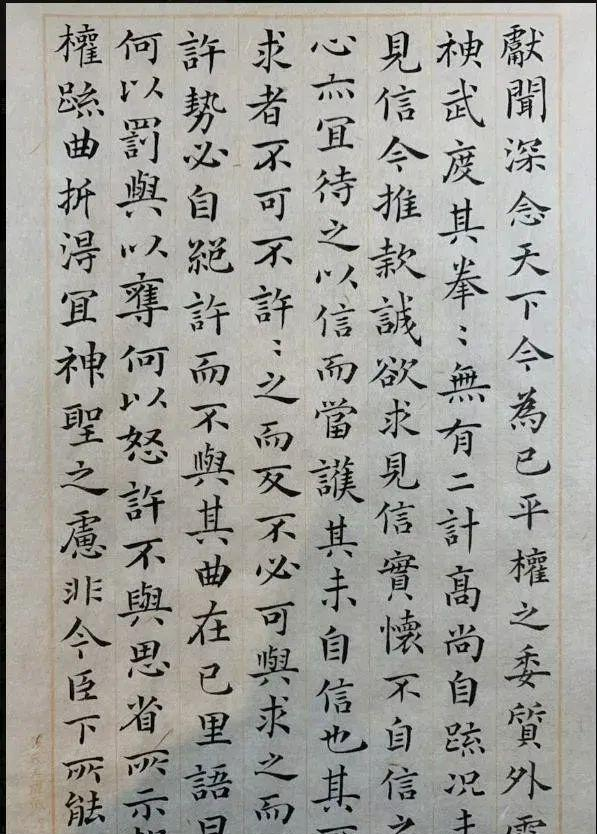 獻聞深念天下今為已平權之委質外
神武度其拳〻無有二計高尚自疏況
見信今推款誠欲求見信實懷不自信之
心亦宜待之以信而當護其未自信也其
求者不可不許〻之而反不必可與求之而
許勢必自絕許而不與其曲在己里語
何以罰與以奪何以怒許不與思省所示
權疏曲折得宜神聖之慮非今臣下所能